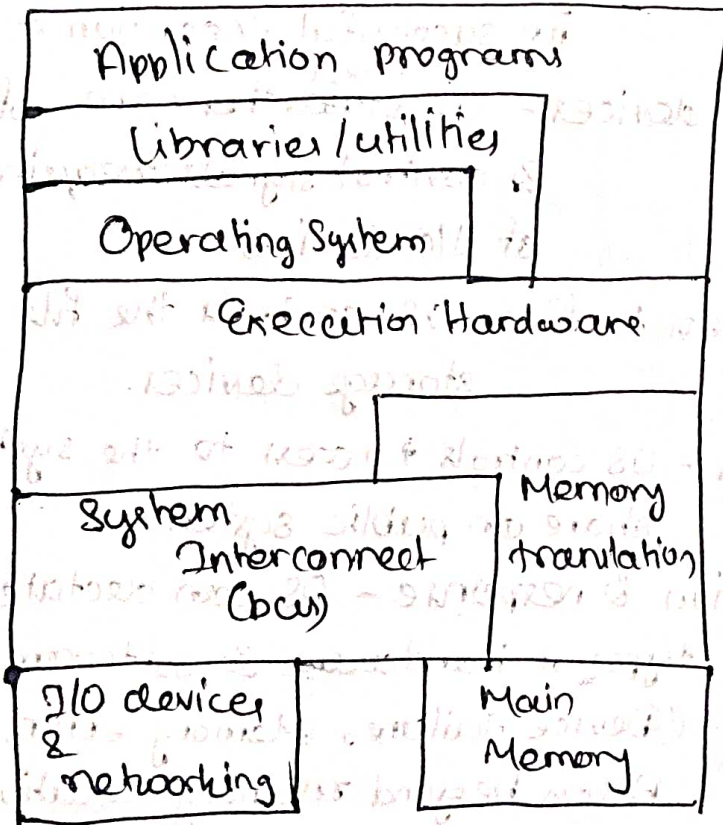 Application programs
Libraries/utilities
Operating System
Execution Hardware
System
Interconnect
(bus)
Memory
translation
I/O devices
&
networking
Main
Memory